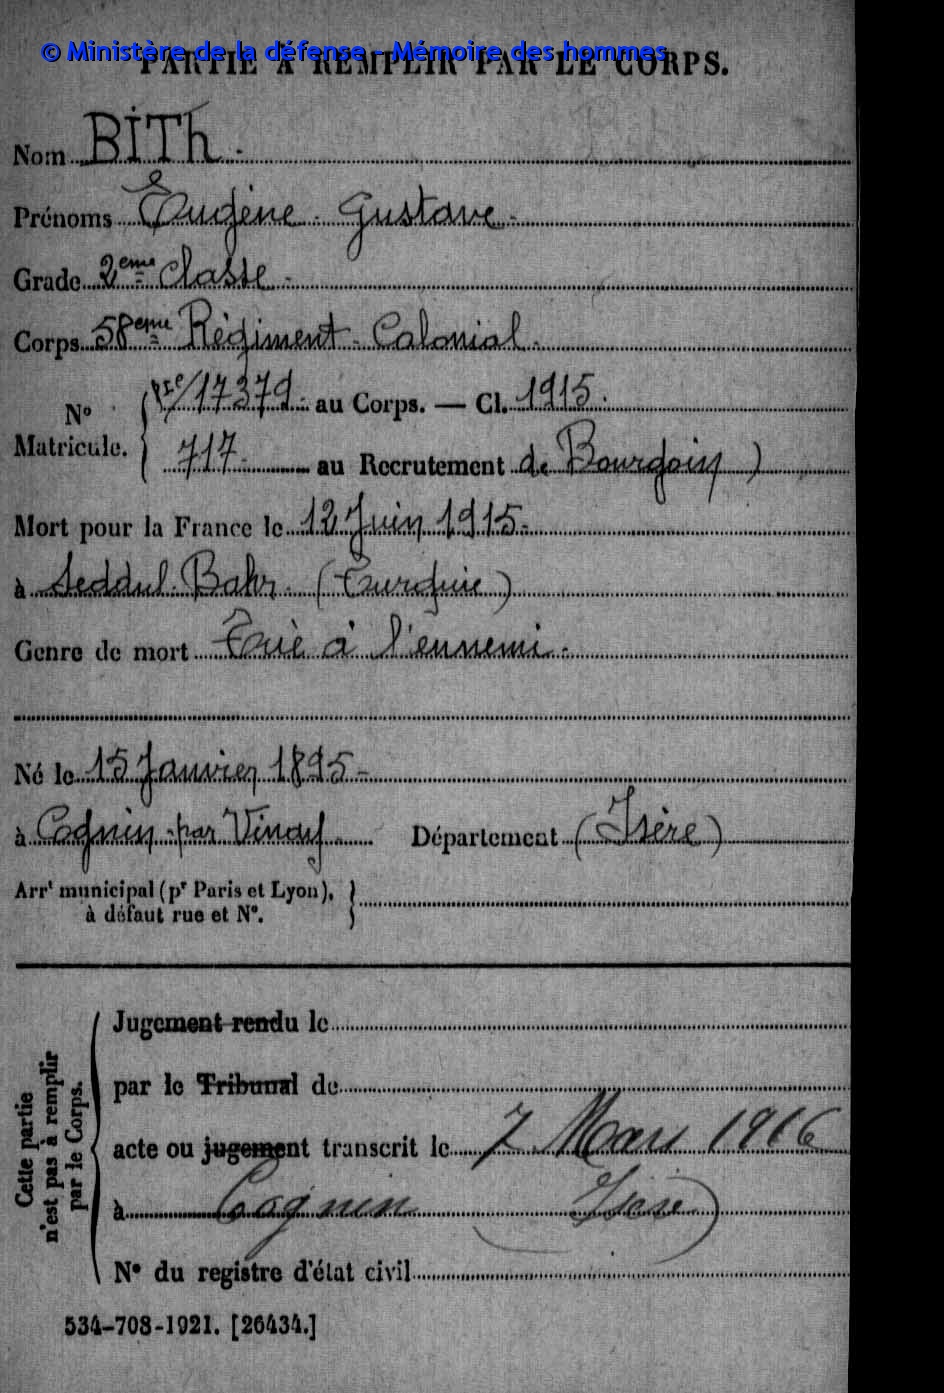 © Ministère de la défense - Mémoire des hommes
PARTIE À REMPLIR PAR LE CORPS.
Nom BITh.
Prénoms Eugène Gustave
Grade 2eme classe
Corps 58eme Régiment Colonial.
No Matricule. 17379 au Corps. — Cl. 1915.
717 au Recrutement de Bourgoin
Mort pour la France le 12 Juin 1915
à Seddul-Bahr. (Turquie)
Genre de mort Tué à l'ennemi.
Né le 15 Janvier 1895
à Cognin-par Vinay Département (Isère)
Arrt municipal (pr Paris et Lyon),
à défaut rue et No.
Cette partie
n'est pas à remplir
par le Corps.
Jugement rendu le
par le Tribunal de
acte ou jugement transcrit le 7 Mars 1916
à Cognin (Isère)
No du registre d'état civil
534-708-1921. [26434.]